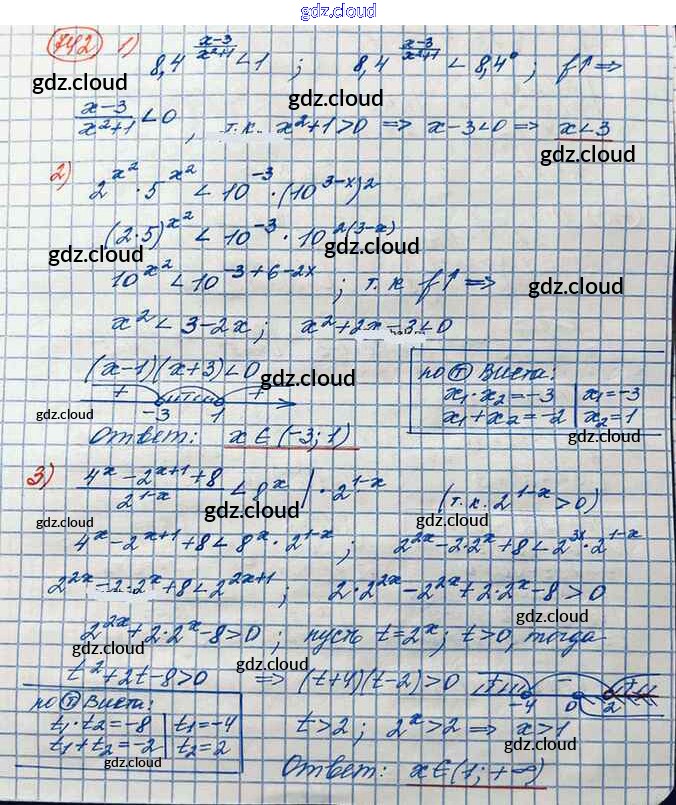 gdz.cloud
742 1) 8,4^{\frac{x-3}{x^2+1}} < 1 ; 8,4^{\frac{x-3}{x^2+1}} < 8,4^0 ; f↑ ⇒
gdz.cloud gdz.cloud
\frac{x-3}{x^2+1} < 0 , т.к. x^2+1>0 ⇒ x-3<0 ⇒ x<3
gdz.cloud gdz.cloud
2) 2^{x^2} · 5^{x^2} < 10^{-3} · (10^{3-x})^2
(2·5)^{x^2} < 10^{-3} · 10^{2(3-x)}
gdz.cloud gdz.cloud
10^{x^2} < 10^{-3+6-2x} ; т.к f↑ ⇒
gdz.cloud
x^2 < 3-2x ; x^2+2x-3<0
(x-1)(x+3)<0
gdz.cloud gdz.cloud
+ + -3 1
по Т Виета:
x_1·x_2=-3 | x_1=-3
x_1+x_2=-2 | x_2=1
gdz.cloud gdz.cloud gdz.cloud
Ответ: x∈(-3;1)
3) \frac{4^x-2^{x+1}+8}{2^{1-x}} < 8^x | ·2^{1-x} (т.к. 2^{1-x}>0)
gdz.cloud gdz.cloud gdz.cloud
4^x-2^{x+1}+8<8^x·2^{1-x} ; 2^{2x}-2·2^x+8<2^{3x}·2^{1-x}
gdz.cloud
2^{2x}-2·2^x+8<2^{2x+1} ; 2·2^{2x}-2^{2x}+2·2^x-8>0
gdz.cloud gdz.cloud
2^{2x}+2·2^x-8>0 ; пусть t=2^x; t>0, тогда
gdz.cloud gdz.cloud
t^2+2t-8>0 ⇒ (t+4)(t-2)>0
+ - + -4 0 2
по Т Виета:
t_1·t_2=-8 | t_1=-4
t_1+t_2=-2 | t_2=2
t>2 ; 2^x>2 ⇒ x>1
gdz.cloud gdz.cloud gdz.cloud
Ответ: x∈(1;+∞)
gdz.cloud gdz.cloud